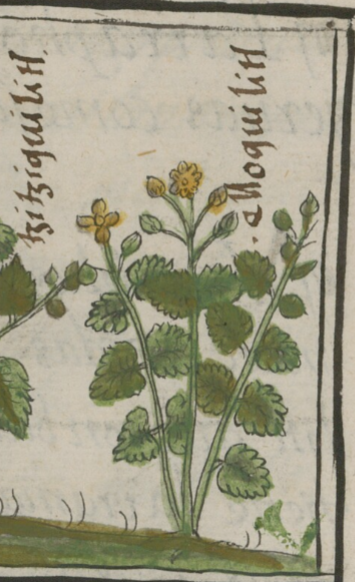 tzitziquilitl
. eloquilitl